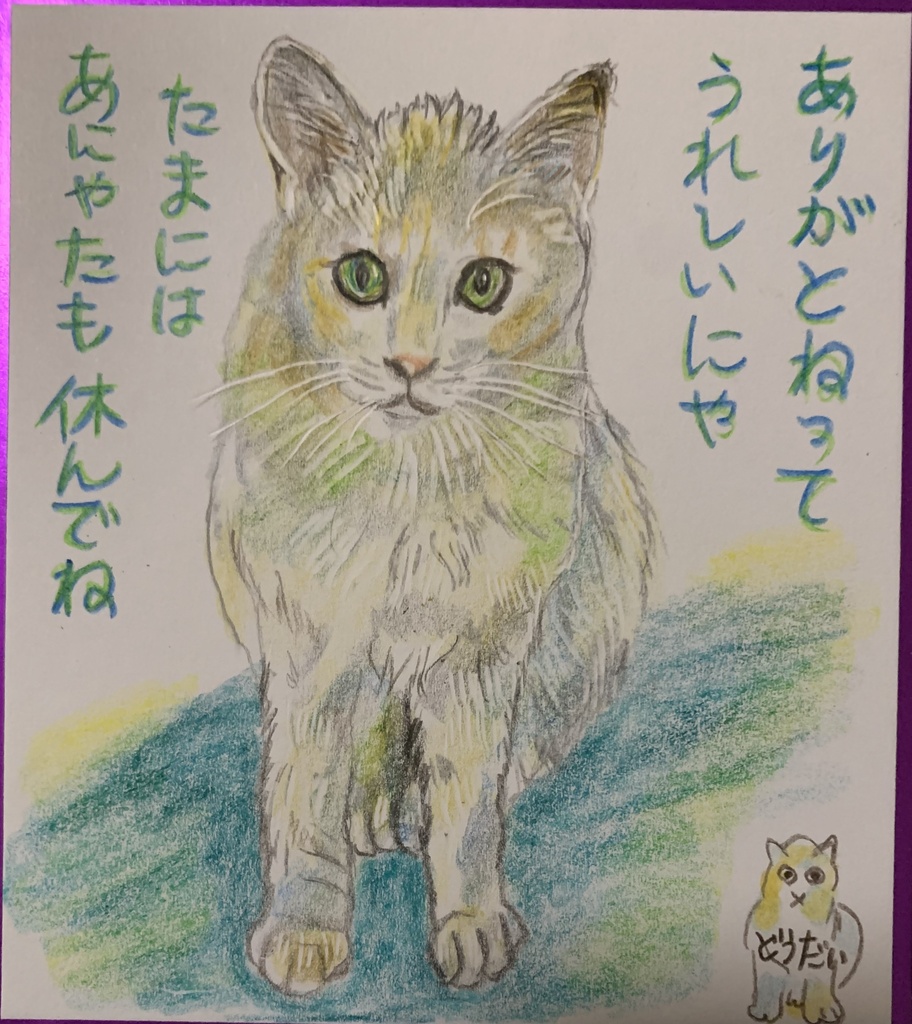 ありがとねって
うれしいにゃ
たまには
あにゃたも休んでね
どうだい